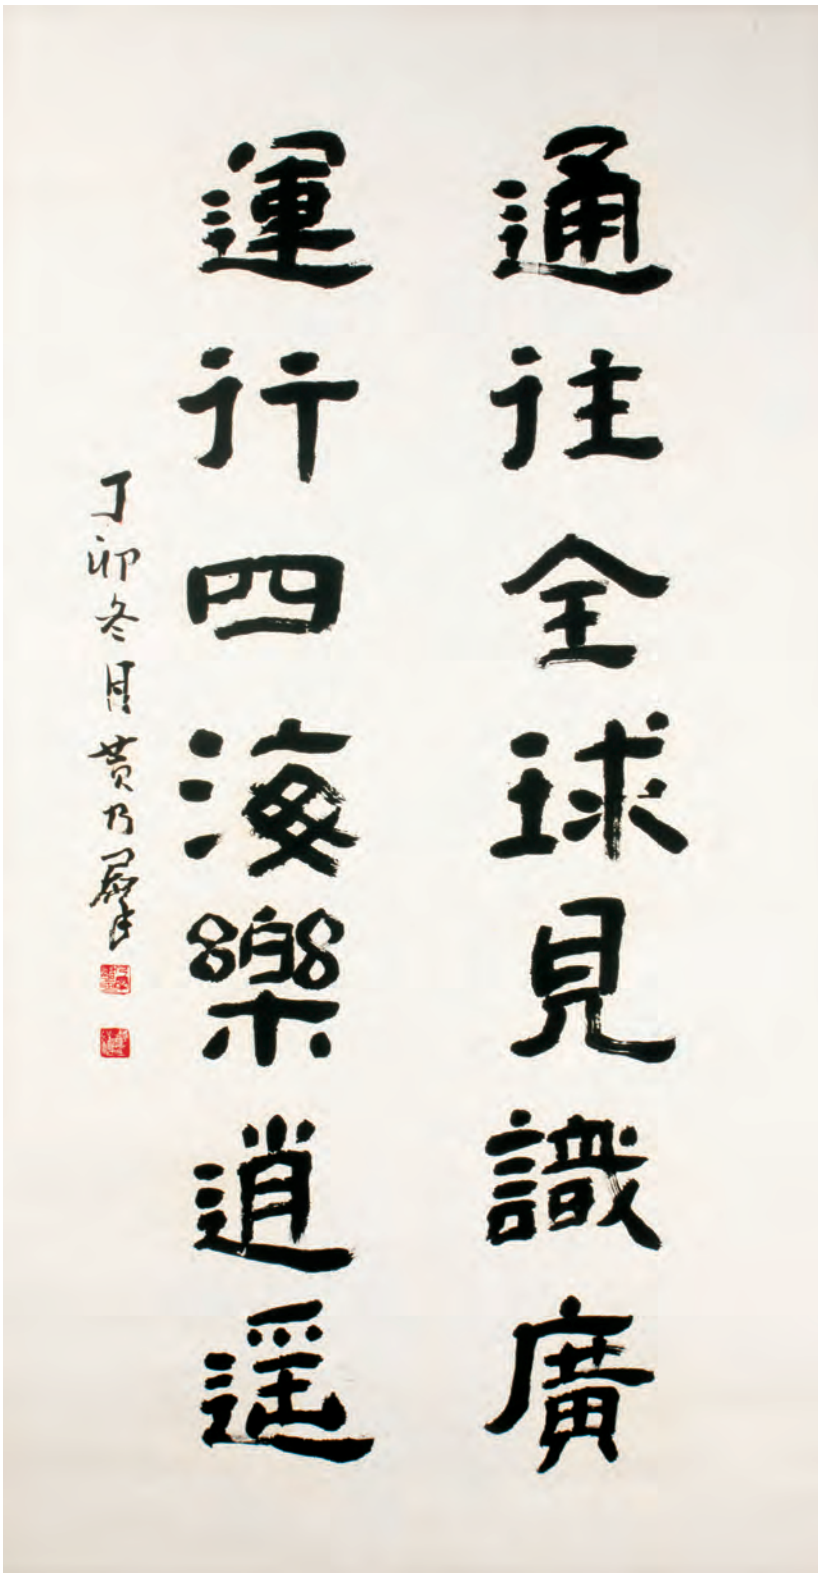 通往全球見識廣
運行四海樂逍遥
丁卯冬月黄乃羣